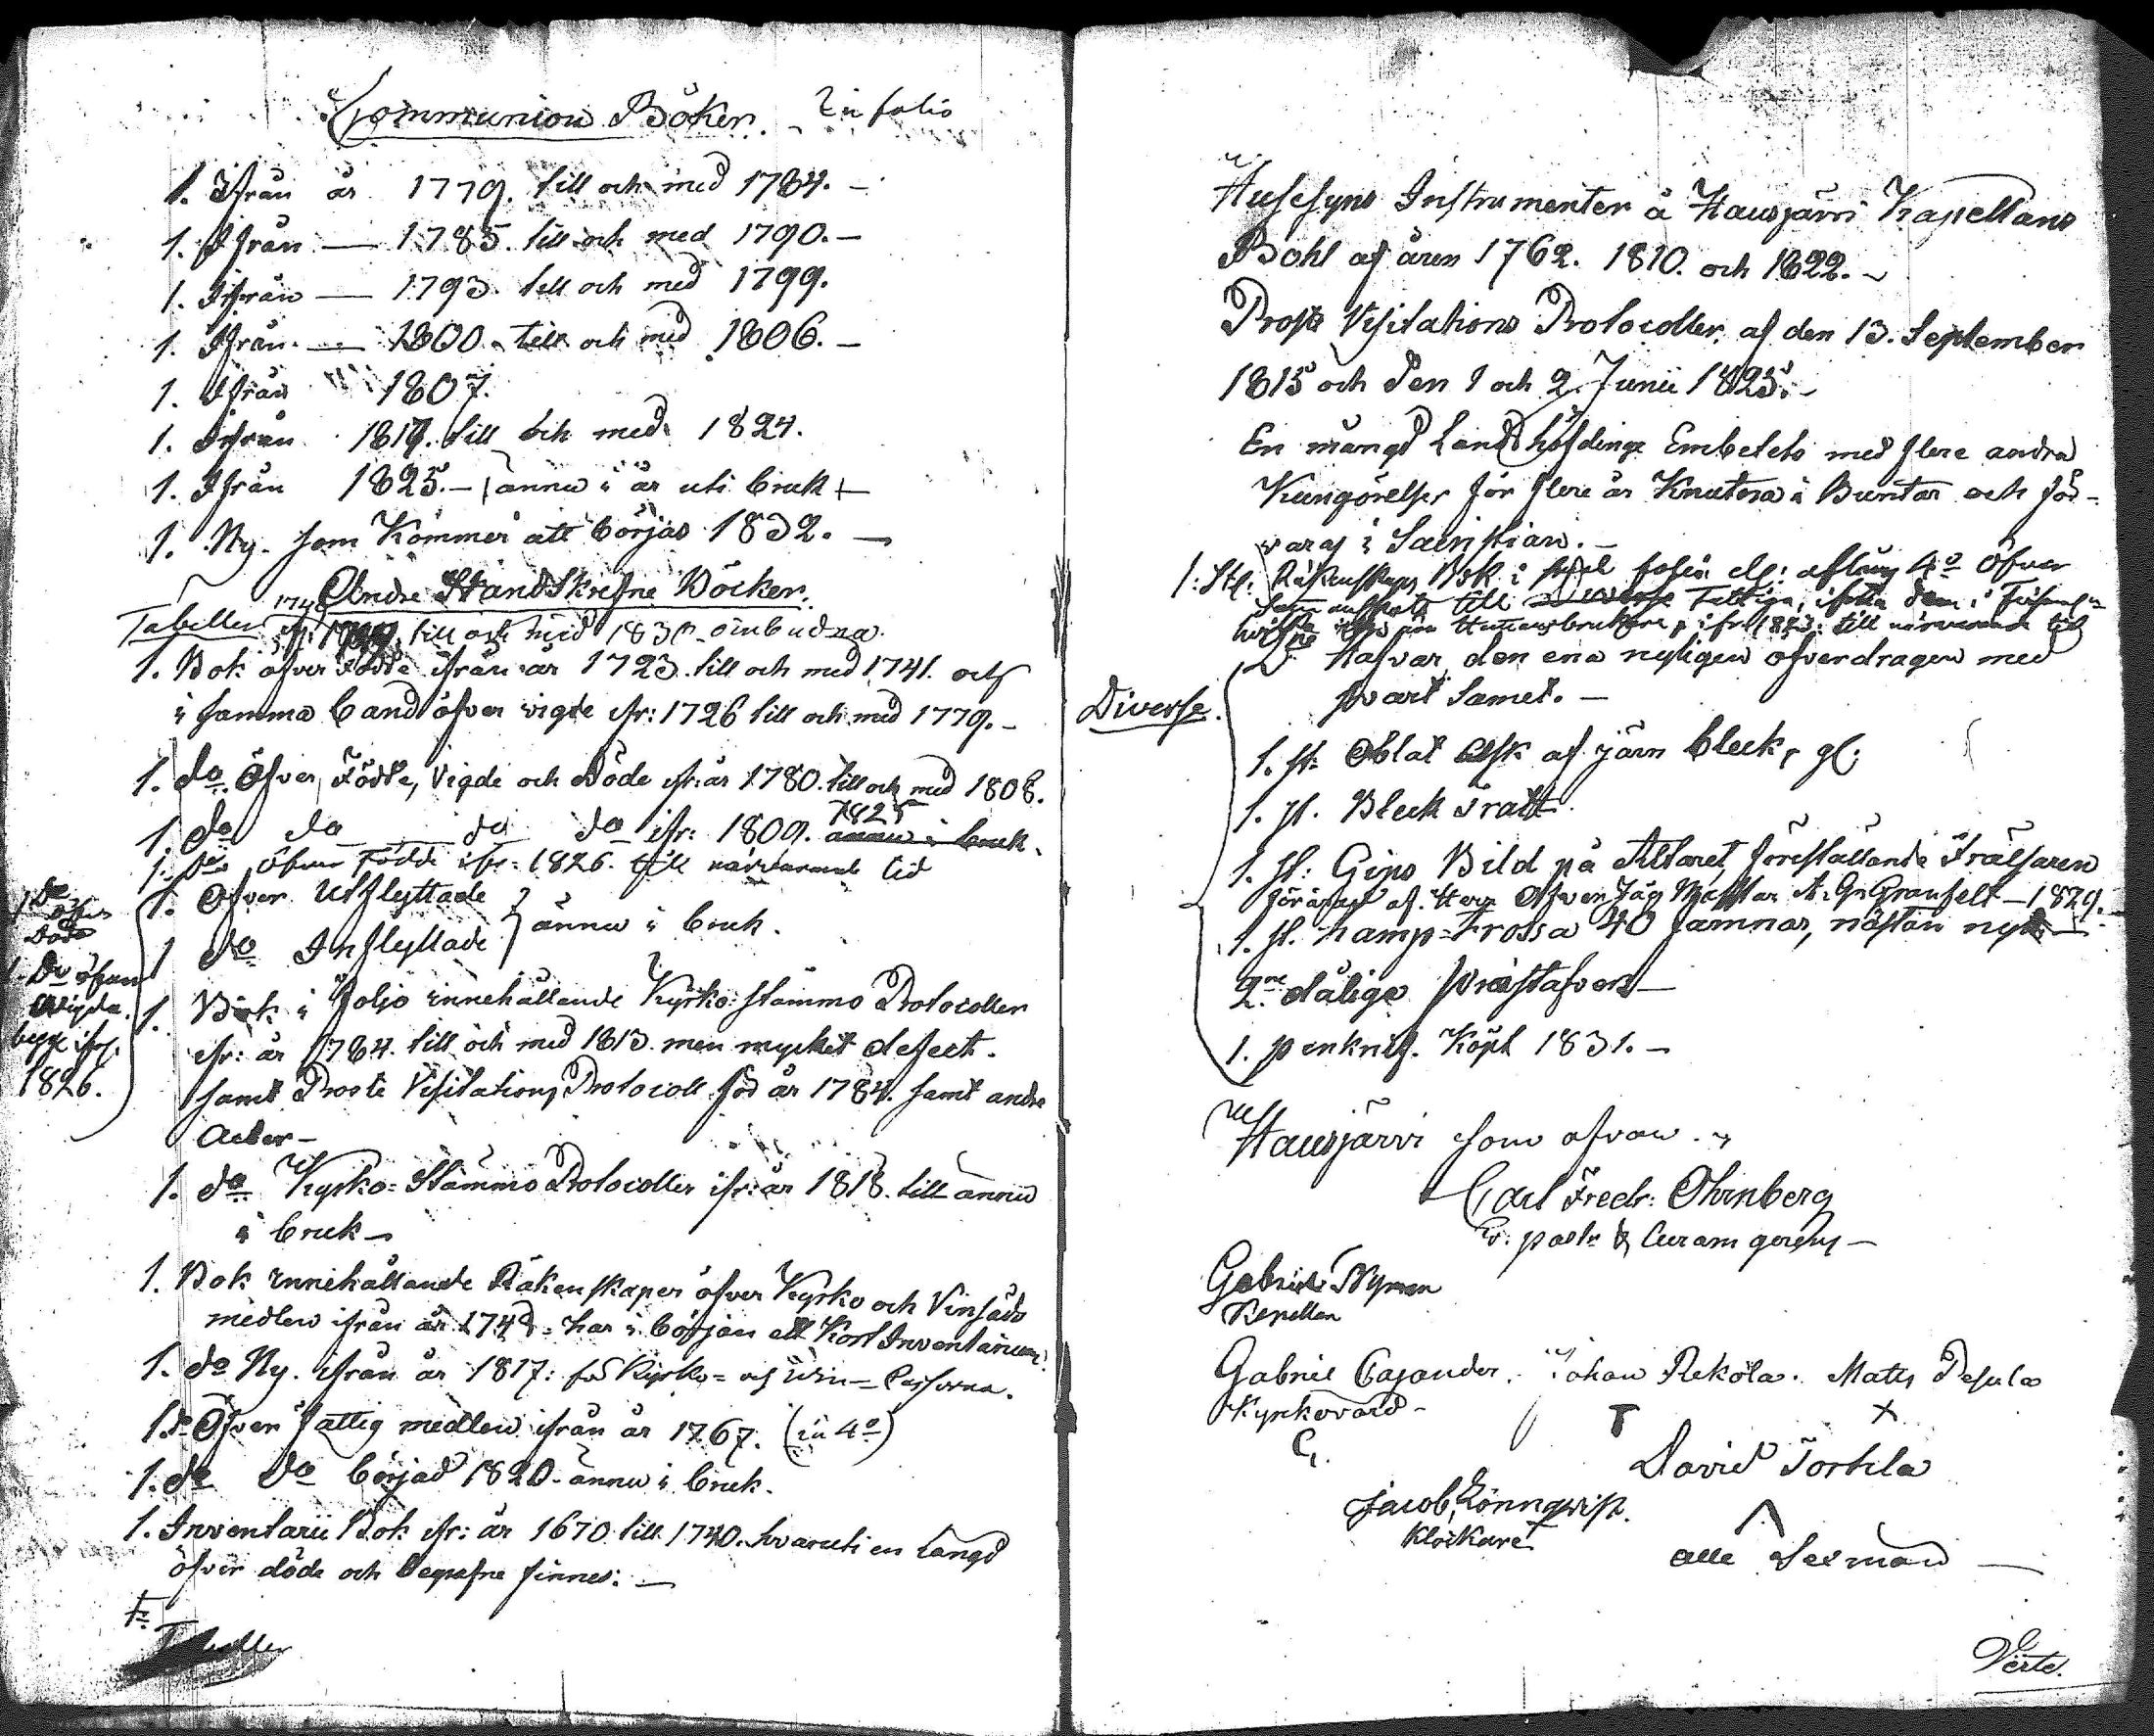 Communion Böker. in folio
1. Ifrån år 1779. till och med 1784. –
1. Ifrån — 1785. till och med 1790. –
1. Ifrån — 1793. till och med 1799.
1. Ifrån — 1800. till och med 1806. –
1. Ifrån 1807.
1. Ifrån 1817. till och med 1824.
1. Ifrån 1825. – ännu i år uti bruk –
1. Ny. som kommer att börjas 1832. –
Andre Handskrefne Böcker.
Tabeller till och med 1830 – oinbudna.
1. Bok öfver Födde ifrån år 1723. till och med 1741. och
i samma band öfver vigde ifr: 1726 till och med 1779. –
1. do Öfver Födde, Vigde och Döde ifr: år 1780. till och med 1808.
1. do do do do ifr: 1809. 1825 ännu i bruk.
1. do öfver Födde ifr: 1826. till närvarande tid
1. Öfver Utflyttade
1 do Inflyttade } ännu i bruk.
1 do öfver Döde
1. Do öfver Vigda. begge ifr. 1826.
1. Bok i folio innehållande Kyrko-stämmo Protocoller
ifr: år 1784. till och med 1813. men mycket defect.
samt Proste Visitations Protocoll för år 1784. samt andre
Acter –
1. do Kyrko-Stämmo Protocoller ifr: år 1818. till ännu
i bruk –
1. Bok innehållande Räkenskaper öfver Kyrko och Vinsäds
medlen ifrån år 174 har i början ett Kort Inventarium.
1. do Ny. ifrån år 1817: för Kyrko- och Vin- Cassorna.
1. do Öfver fattig medlen ifrån år 1767. (in 4o)
1. do do börjad 1820. ännu i bruk.
1. Inventarii Bok ifr: år 1670 till 1740. hvaruti en längd
öfver döde och begrafne finnes. –
Tabeller
Husesyns Instrumenter å Hausjärvi Kapellans
Bohl af åren 1762. 1810. och 1822. –
Prosts Visitations Protocoller, af den 13. September
1815 och den 1 och 2. Junii 1825. –
En mängd Landshöfdinge Embetets med flere andra
Kungörelser för flere år Knutna i Buntar och för-
varas i Sacristian. –
1: St: Räkenskaps Bok i folio el: aflång 4o öfver
till Fattiga,
1823: till närvarande tid
Diverse.
2 Hafvar den ena nyligen öfverdragen med
svart Samet. –
1. st: Oblat ask af järn bleck, gl:
1. st. Bleck Tratt.
1. st: Gips Bild på Altaret, föreställande Frälsaren
förärad af Herr Öfver Jäg Mästar A: Gr: Granfelt – 1829.
1. st. Lamp-Trossa 40 famnar, nästan ny –
2ne dålige Prästafven –
1. penknif. Köpt 1831. –
Hausjärvi som ofvan.
Carl Fredr: Ohrnberg
V: past: & Curam gerens –
Gabriel Nyman
Kapellan
Gabriel Cajander. Johan Rekola. Matts Pesula
Kyrkovärd – T X
C,
David Torhla
Jacob Lönnqvist.
Klockare
Λ
alle Sexmän –
Verte.